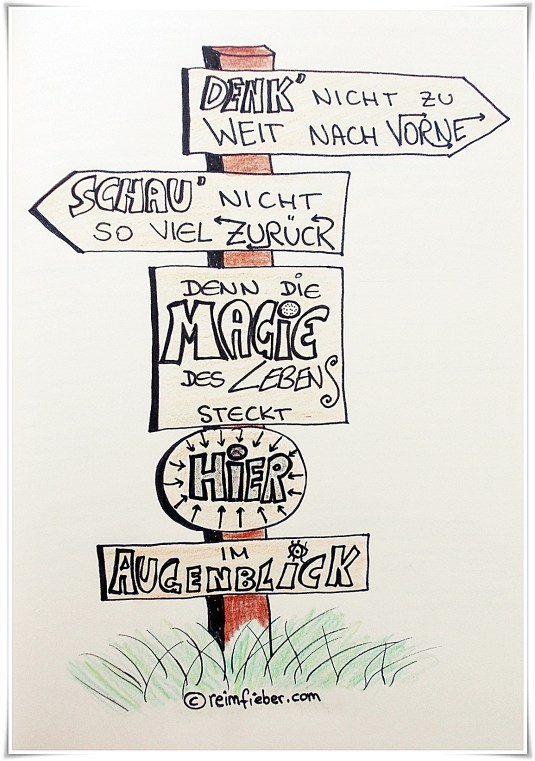 DENK' NICHT ZU
WEIT NACH VORNE
SCHAU' NICHT
SO VIEL ZURÜCK
DENN DIE
MAGiE
DES LEBENS
STECKT
HiER
IM
AUGENBLiCK
© reimfieber.com